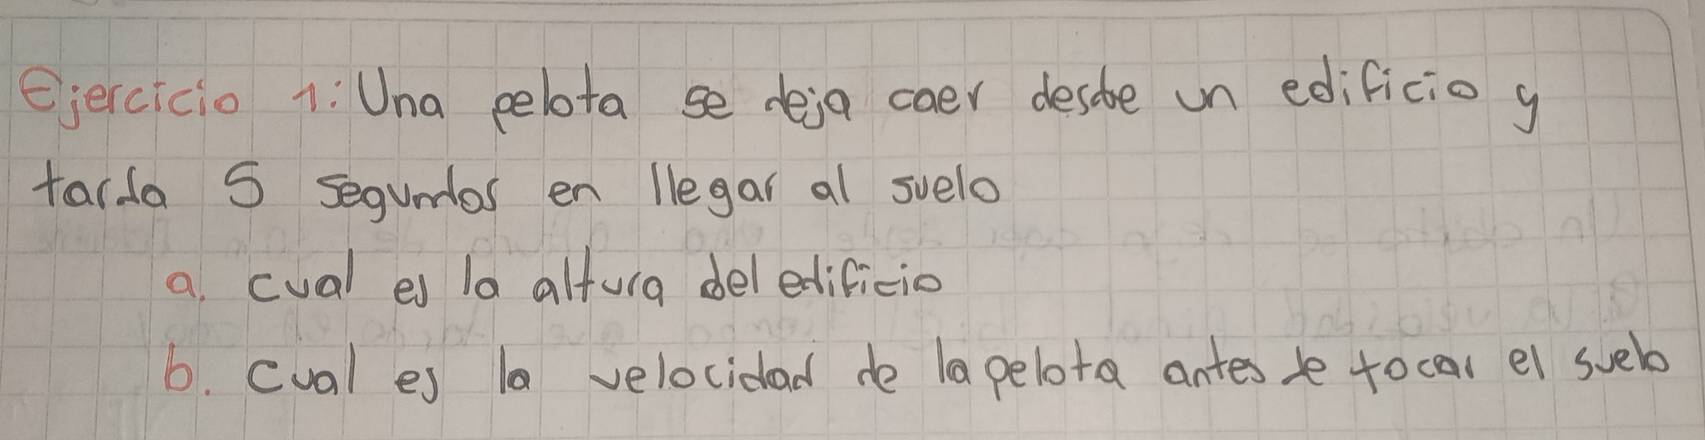 Ejercicio 1: Una pelota se deja caer desde un edificio y
tarda 5 segundos en llegar al suelo
a. cual es la altura del edificio
b. cual es la velocidad de la pelota antes de tocar el suelo